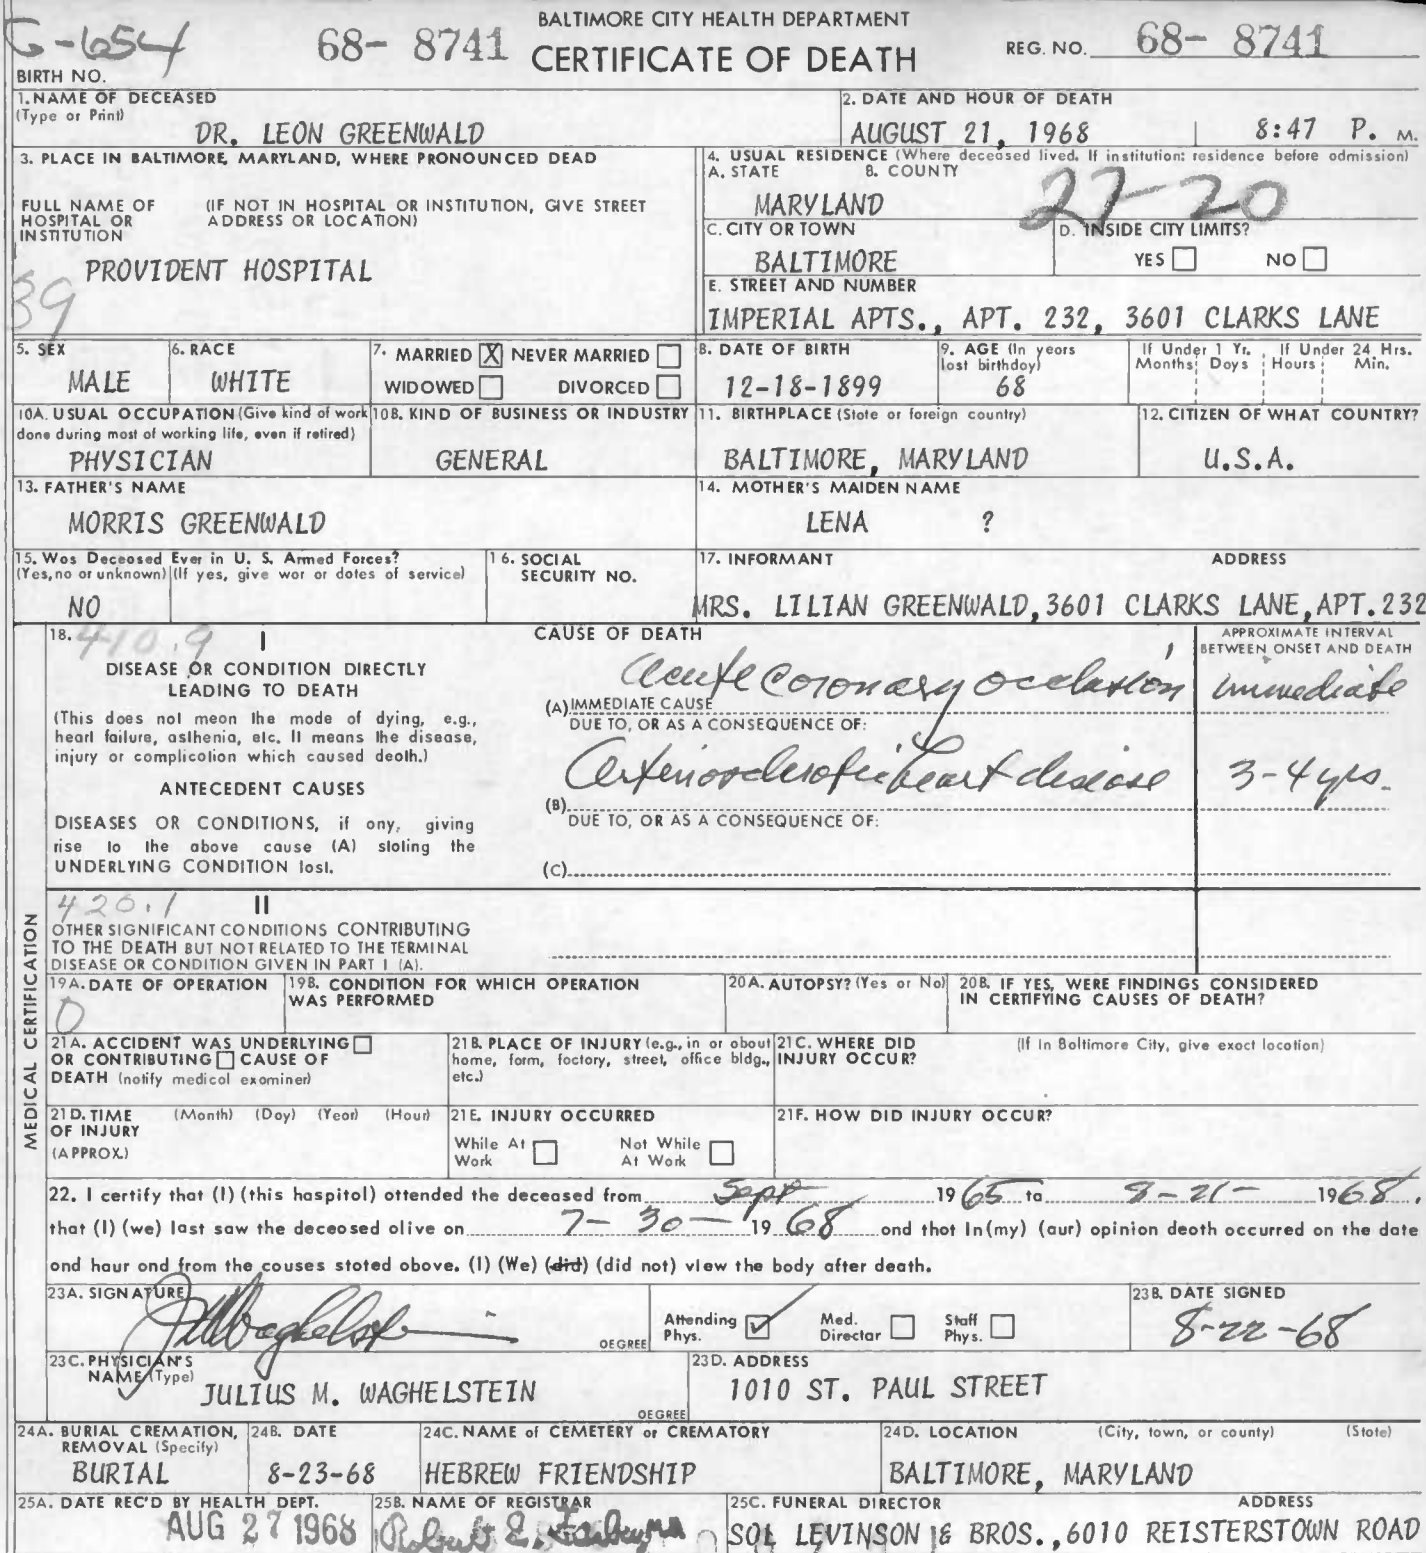 BALTIMORE CITY HEALTH DEPARTMENT
G-654 68- 8741 CERTIFICATE OF DEATH REG. NO. 68- 8741
BIRTH NO.
1. NAME OF DECEASED
(Type or Print)
DR. LEON GREENWALD
2. DATE AND HOUR OF DEATH
AUGUST 21, 1968 8:47 P. M.
3. PLACE IN BALTIMORE, MARYLAND, WHERE PRONOUNCED DEAD
FULL NAME OF HOSPITAL OR INSTITUTION
(IF NOT IN HOSPITAL OR INSTITUTION, GIVE STREET ADDRESS OR LOCATION)
PROVIDENT HOSPITAL
39
4. USUAL RESIDENCE (Where deceased lived. If institution: residence before admission)
A. STATE B. COUNTY
MARYLAND 27-20
C. CITY OR TOWN
BALTIMORE
D. INSIDE CITY LIMITS?
YES NO
E. STREET AND NUMBER
IMPERIAL APTS., APT. 232, 3601 CLARKS LANE
5. SEX
MALE
6. RACE
WHITE
7. MARRIED X NEVER MARRIED
WIDOWED DIVORCED
8. DATE OF BIRTH
12-18-1899
9. AGE (In years last birthday)
68
If Under 1 Yr. If Under 24 Hrs.
Months Days Hours Min.
10A. USUAL OCCUPATION (Give kind of work done during most of working life, even if retired)
PHYSICIAN
10B. KIND OF BUSINESS OR INDUSTRY
GENERAL
11. BIRTHPLACE (State or foreign country)
BALTIMORE, MARYLAND
12. CITIZEN OF WHAT COUNTRY?
U.S.A.
13. FATHER'S NAME
MORRIS GREENWALD
14. MOTHER'S MAIDEN NAME
LENA ?
15. Was Deceased Ever in U. S. Armed Forces?
(Yes, no or unknown) (If yes, give war or dates of service)
NO
16. SOCIAL SECURITY NO.
17. INFORMANT ADDRESS
MRS. LILIAN GREENWALD, 3601 CLARKS LANE, APT. 232
MEDICAL CERTIFICATION
18. 410.9 I
DISEASE OR CONDITION DIRECTLY
LEADING TO DEATH
(This does not mean the mode of dying, e.g.,
heart failure, asthenia, etc. It means the disease,
injury or complication which caused death.)
ANTECEDENT CAUSES
DISEASES OR CONDITIONS, if any, giving
rise to the above cause (A) stating the
UNDERLYING CONDITION last.
CAUSE OF DEATH
APPROXIMATE INTERVAL
BETWEEN ONSET AND DEATH
Acute Coronary Occlusion immediate
(A) IMMEDIATE CAUSE
DUE TO, OR AS A CONSEQUENCE OF:
Arteriosclerotic heart disease 3-4 yrs.
(B)
DUE TO, OR AS A CONSEQUENCE OF:
(C)
420.1 II
OTHER SIGNIFICANT CONDITIONS CONTRIBUTING
TO THE DEATH BUT NOT RELATED TO THE TERMINAL
DISEASE OR CONDITION GIVEN IN PART I (A).
19A. DATE OF OPERATION
0
19B. CONDITION FOR WHICH OPERATION WAS PERFORMED
20A. AUTOPSY? (Yes or No)
20B. IF YES, WERE FINDINGS CONSIDERED IN CERTIFYING CAUSES OF DEATH?
21A. ACCIDENT WAS UNDERLYING
OR CONTRIBUTING CAUSE OF
DEATH (notify medical examiner)
21B. PLACE OF INJURY (e.g., in or about home, farm, factory, street, office bldg., etc.)
21C. WHERE DID INJURY OCCUR? (If in Baltimore City, give exact location)
21D. TIME OF INJURY (APPROX.) (Month) (Day) (Year) (Hour)
21E. INJURY OCCURRED
While At Work Not While At Work
21F. HOW DID INJURY OCCUR?
22. I certify that (I) (this hospital) attended the deceased from Sept 1965 to 8-21- 1968,
that (I) (we) last saw the deceased alive on 7-30- 1968 and that in (my) (our) opinion death occurred on the date
and hour and from the causes stated above. (I) (We) (did) (did not) view the body after death.
23A. SIGNATURE
JMWaghelstein
DEGREE
Attending Phys. Med. Director Staff Phys.
23B. DATE SIGNED
8-22-68
23C. PHYSICIAN'S NAME (Type)
JULIUS M. WAGHELSTEIN
DEGREE
23D. ADDRESS
1010 ST. PAUL STREET
24A. BURIAL CREMATION, REMOVAL (Specify)
BURIAL
24B. DATE
8-23-68
24C. NAME of CEMETERY or CREMATORY
HEBREW FRIENDSHIP
24D. LOCATION (City, town, or county) (State)
BALTIMORE, MARYLAND
25A. DATE REC'D BY HEALTH DEPT.
AUG 27 1968
25B. NAME OF REGISTRAR
Robert E. Farber MD
25C. FUNERAL DIRECTOR ADDRESS
SOL LEVINSON & BROS., 6010 REISTERSTOWN ROAD